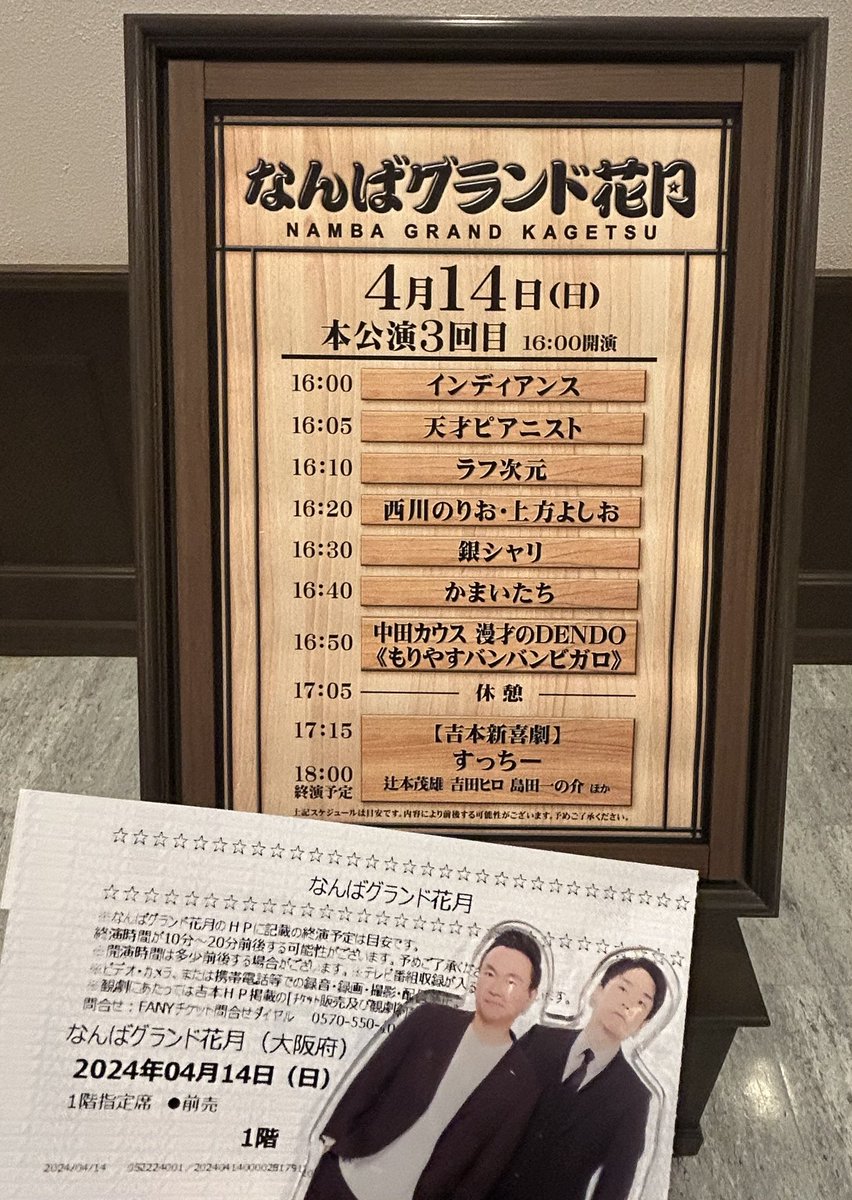 なんばグランド花月
NAMBA GRAND KAGETSU
4月14日(日)
本公演3回目 16:00開演
16:00 インディアンス
16:05 天才ピアニスト
16:10 ラフ次元
16:20 西川のりお・上方よしお
16:30 銀シャリ
16:40 かまいたち
16:50 中田カウス 漫才のDENDO
《もりやすバンバンビガロ》
17:05 休憩
17:15 【吉本新喜劇】
すっちー
18:00 辻本茂雄 吉田ヒロ 島田一の介 ほか
終演予定
上記スケジュールは目安です。内容により前後する可能性がございます。予めご了承ください。
☆☆☆☆☆☆☆☆☆☆☆☆☆☆☆☆☆☆☆☆☆☆☆☆☆☆☆☆☆☆
なんばグランド花月
☆☆☆☆☆☆☆☆☆☆☆☆☆☆☆☆☆☆☆☆☆☆☆☆☆☆☆☆☆☆
※なんばグランド花月のHPに記載の終演予定は目安です。
終演時間が10分〜20分前後する可能性がございます。予めご了承くだ
※開演時間は多少前後する場合がございます。※テレビ番組収録が入る
※ビデオ・カメラ、または携帯電話等での録音・録画・撮影・配信
※観劇にあたっては吉本HP掲載の【チケット販売及び観劇 す。
問合せ:FANYチケット問合せダイヤル 0570-550-1
なんばグランド花月(大阪府)
2024年04月14日(日)
1階指定席 ●前売
1階
2024/04/14